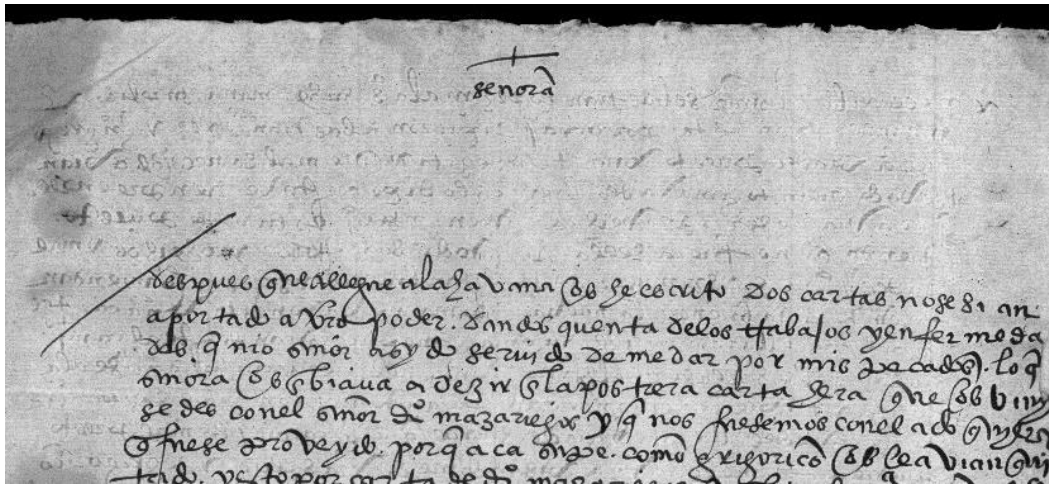 señora
despues que allegue a la havana os he escrito dos cartas no se si an
aportado a vro poder. dandos quenta de los trabajos y enfermeda
des. q nro señor a sydo servido de me dar por mis pecados. lo q
señora os enbiava a dezir en la postrera carta hera que os viny
sedes con el señor dº mazariegos y q nos fuesemos con el a do quyera
q fuese proveydo. porq aca supe. como
por carta de dº